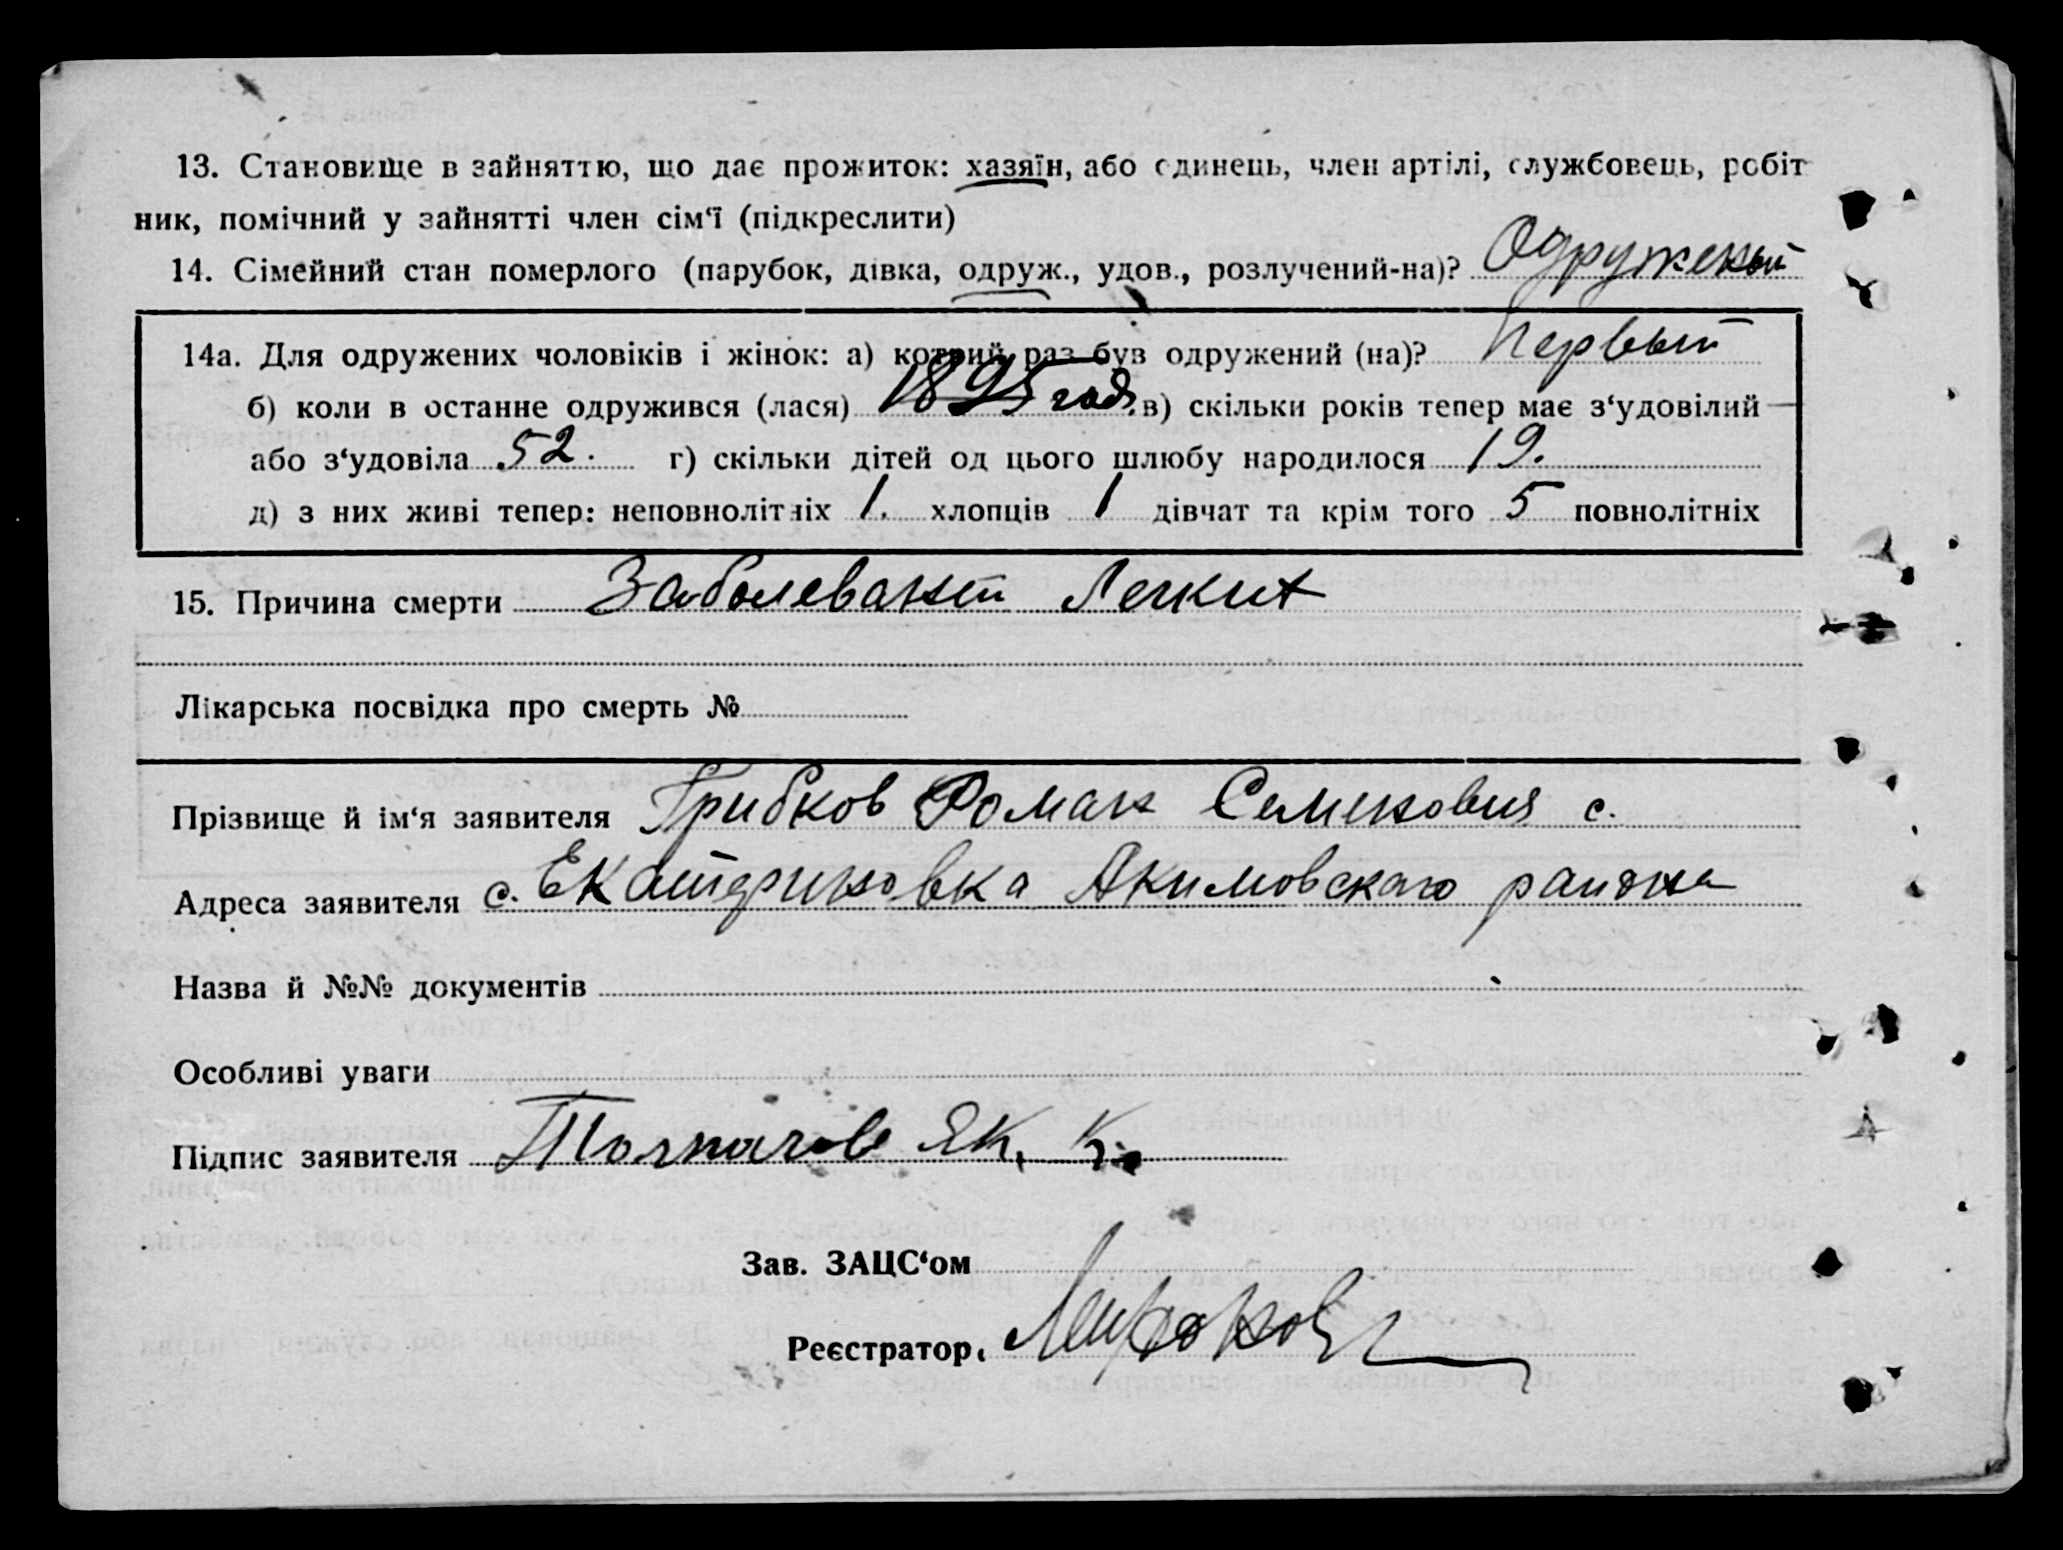 13. Становище в зайняттю, що дає прожиток: хазяїн, або одинець, член артілі, службовець, робіт
ник, помічний у зайнятті член сім‘ї (підкреслити)
14. Сімейний стан померлого (парубок, дівка, одруж., удов., розлучений-на)? Одруженый
14а. Для одружених чоловіків і жінок: а) котрий раз був одружений (на)? Первый
б) коли в останне одружився (лася) 1895 год. в) скільки років тепер має з‘удовілий
або з‘удовіла 52. г) скільки дітей од цього шлюбу народилося 19.
д) з них живі тепер: неповнолітніх 1. хлопців 1 дівчат та крім того 5 повнолітніх
15. Причина смерти Заболеваний Легких
Лікарська посвідка про смерть №
Прізвище й ім‘я заявителя Грибков Роман Семенович с.
Адреса заявителя с. Екатериновка Акимовского района
Назва й №№ документів
Особливі уваги
Підпис заявителя Як. К.
Зав. ЗАЦС‘ом
Реєстратор